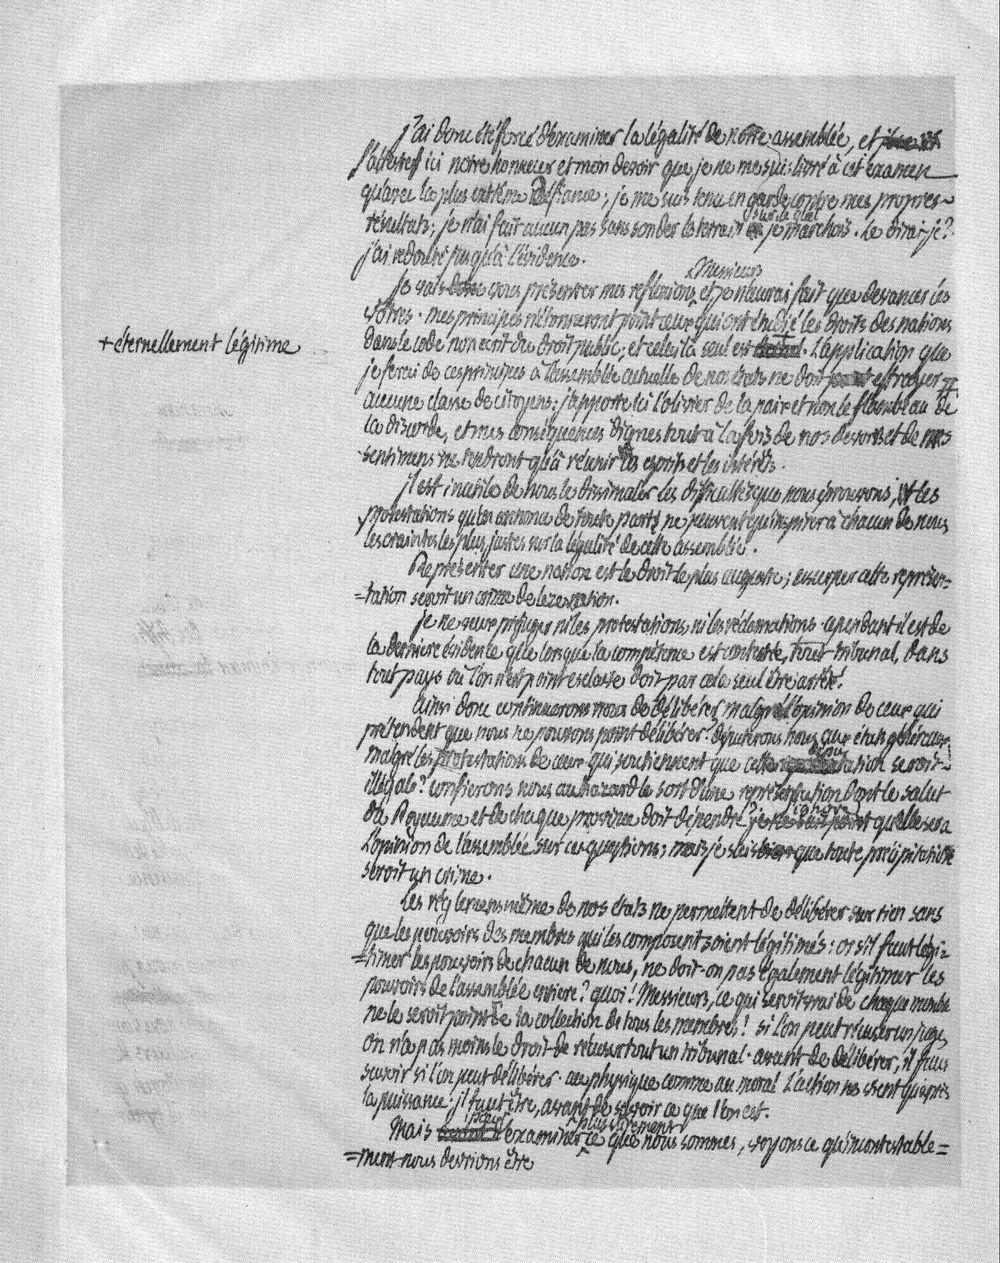 J'ai donc été forcé d'examiner la légalité de notre assemblée, et
j'atteste ici notre honneur et mon devoir que je ne me suis livré à cet examen
qu'avec la plus extrême défiance ; je me suis tenu en garde contre mes propres
résultats ; je n'ai fait aucun pas sans sonder le terrain sur lequel je marchois. Le dirai-je ?
j'ai redouté jusqu'à l'évidence.
Je vais donc vous présenter mes réflexions, Messieurs et je n'aurai fait que devancer les
vôtres. mes principes n'étonneront point ceux qui ont étudié les droits des nations
dans le code non écrit du droit public, et celui là seul est +. L'application que
+ éternellement légitime
je ferai de ces principes à l'assemblée actuelle de nos états ne doit effrayer
aucune classe de citoyens : j'apporte ici l'olivier de la paix et non le flambeau de
la discorde, et mes conséquences dignes tout à la fois de nos devoirs et de mes
sentimens ne tendront qu'à réunir les esprits et les intérêts.
il est inutile de nous le dissimuler les difficultés que nous éprouvons, et les
protestations qu'on annonce de toute parts ne peuvent qu'inspirer à chacun de nous
les craintes les plus justes sur la légalité de cette assemblée.
Représenter une nation est le droit le plus auguste ; usurper cette représen-
=tation seroit un crime de leze nation.
je ne veux préjuger ni les protestations, ni les réclamations. cependant il est de
la derniere évidence que lorsque la compétence est contestée, tout tribunal, dans
tout pays où l'on n'est point esclave doit par cela seul être arrêté.
Ainsi donc continuerons nous de délibérer malgré l'opinion de ceux qui
prétendent que nous ne pouvons point délibérer ? députerons nous aux états généraux
malgré les protestations de ceux qui soutiennent que cette députation seroit
illégale ? confierons nous au hazard le sort d'une représentation dont le salut
du Royaume et de chaque province doit dépendre ? j'ignore quelle sera
l'opinion de l'assemblée sur ces questions ; mais je sais bien que toute précipitation
seroit un crime.
Les réglemens même de nos états ne permettent de délibérer sur rien sans
que les pouvoirs des membres qui les composent soient légitimés : or s'il faut légi-
=timer les pouvoirs de chacun de nous, ne doit-on pas également légitimer les
pouvoirs de l'assemblée entiere ? quoi ! Messieurs, ce qui seroit vrai de chaque membre
ne le seroit point de la collection de tous les membres ! si l'on peut récuser un juge,
on n'a pas moins le droit de récuser tout un tribunal. avant de délibérer, il faut
savoir si l'on peut délibérer. au physique comme au moral l'action ne vient qu'après
la puissance : il faut être, avant de savoir ce que l'on est.
Mais pour examiner plus surement ce que nous sommes, voyons ce qu'incontestable=
=ment nous devrions être